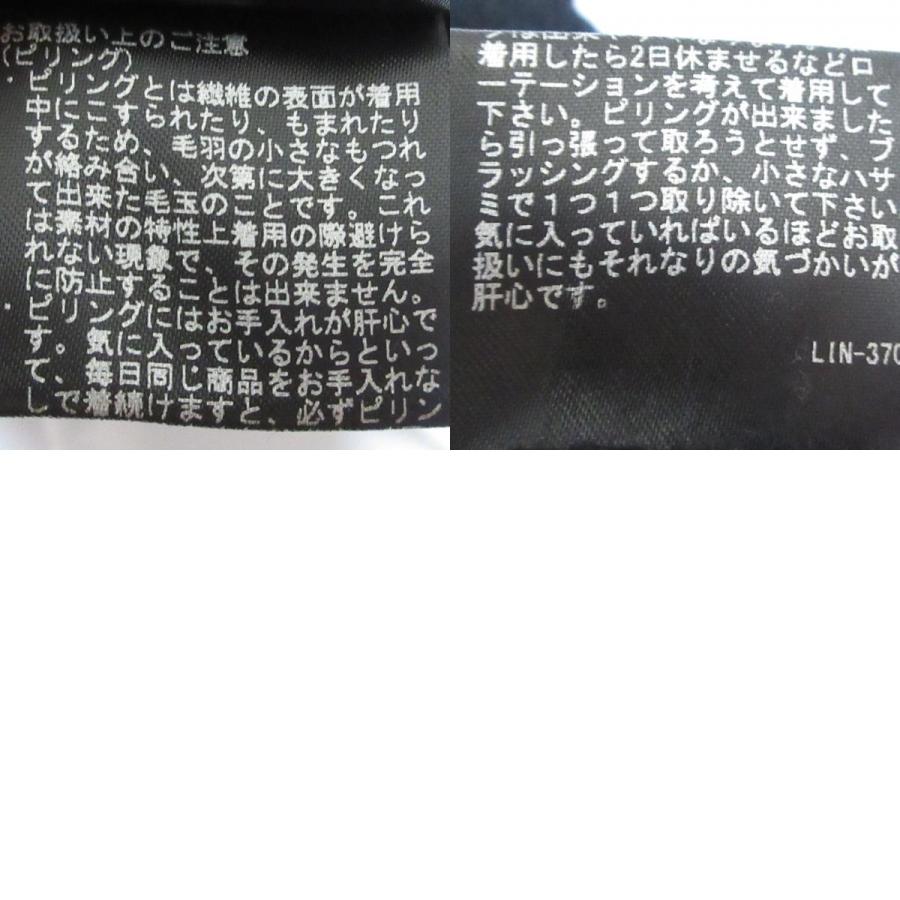 お取扱い上のご注意
(ピリング)
・ピリングとは繊維の表面が着用
中にこすられたり、もまれたり
するため、毛羽の小さなもつれ
が絡み合い、次第に大きくなっ
て出来た毛玉のことです。これ
は素材の特性上着用の際避けら
れない現象で、その発生を完全
に防止することは出来ません。
・ピリングにはお手入れが肝心で
す。気に入っているからといっ
て、毎日同じ商品をお手入れな
しで着続けますと、必ずピリン
着用したら2日休ませるなどロ
ーテーションを考えて着用して
下さい。ピリングが出来ました
ら引っ張って取ろうとせず、ブ
ラッシングするか、小さなハサ
ミで1つ1つ取り除いて下さい
気に入っていればいるほどお取
扱いにもそれなりの気づかいが
肝心です。
LIN-370